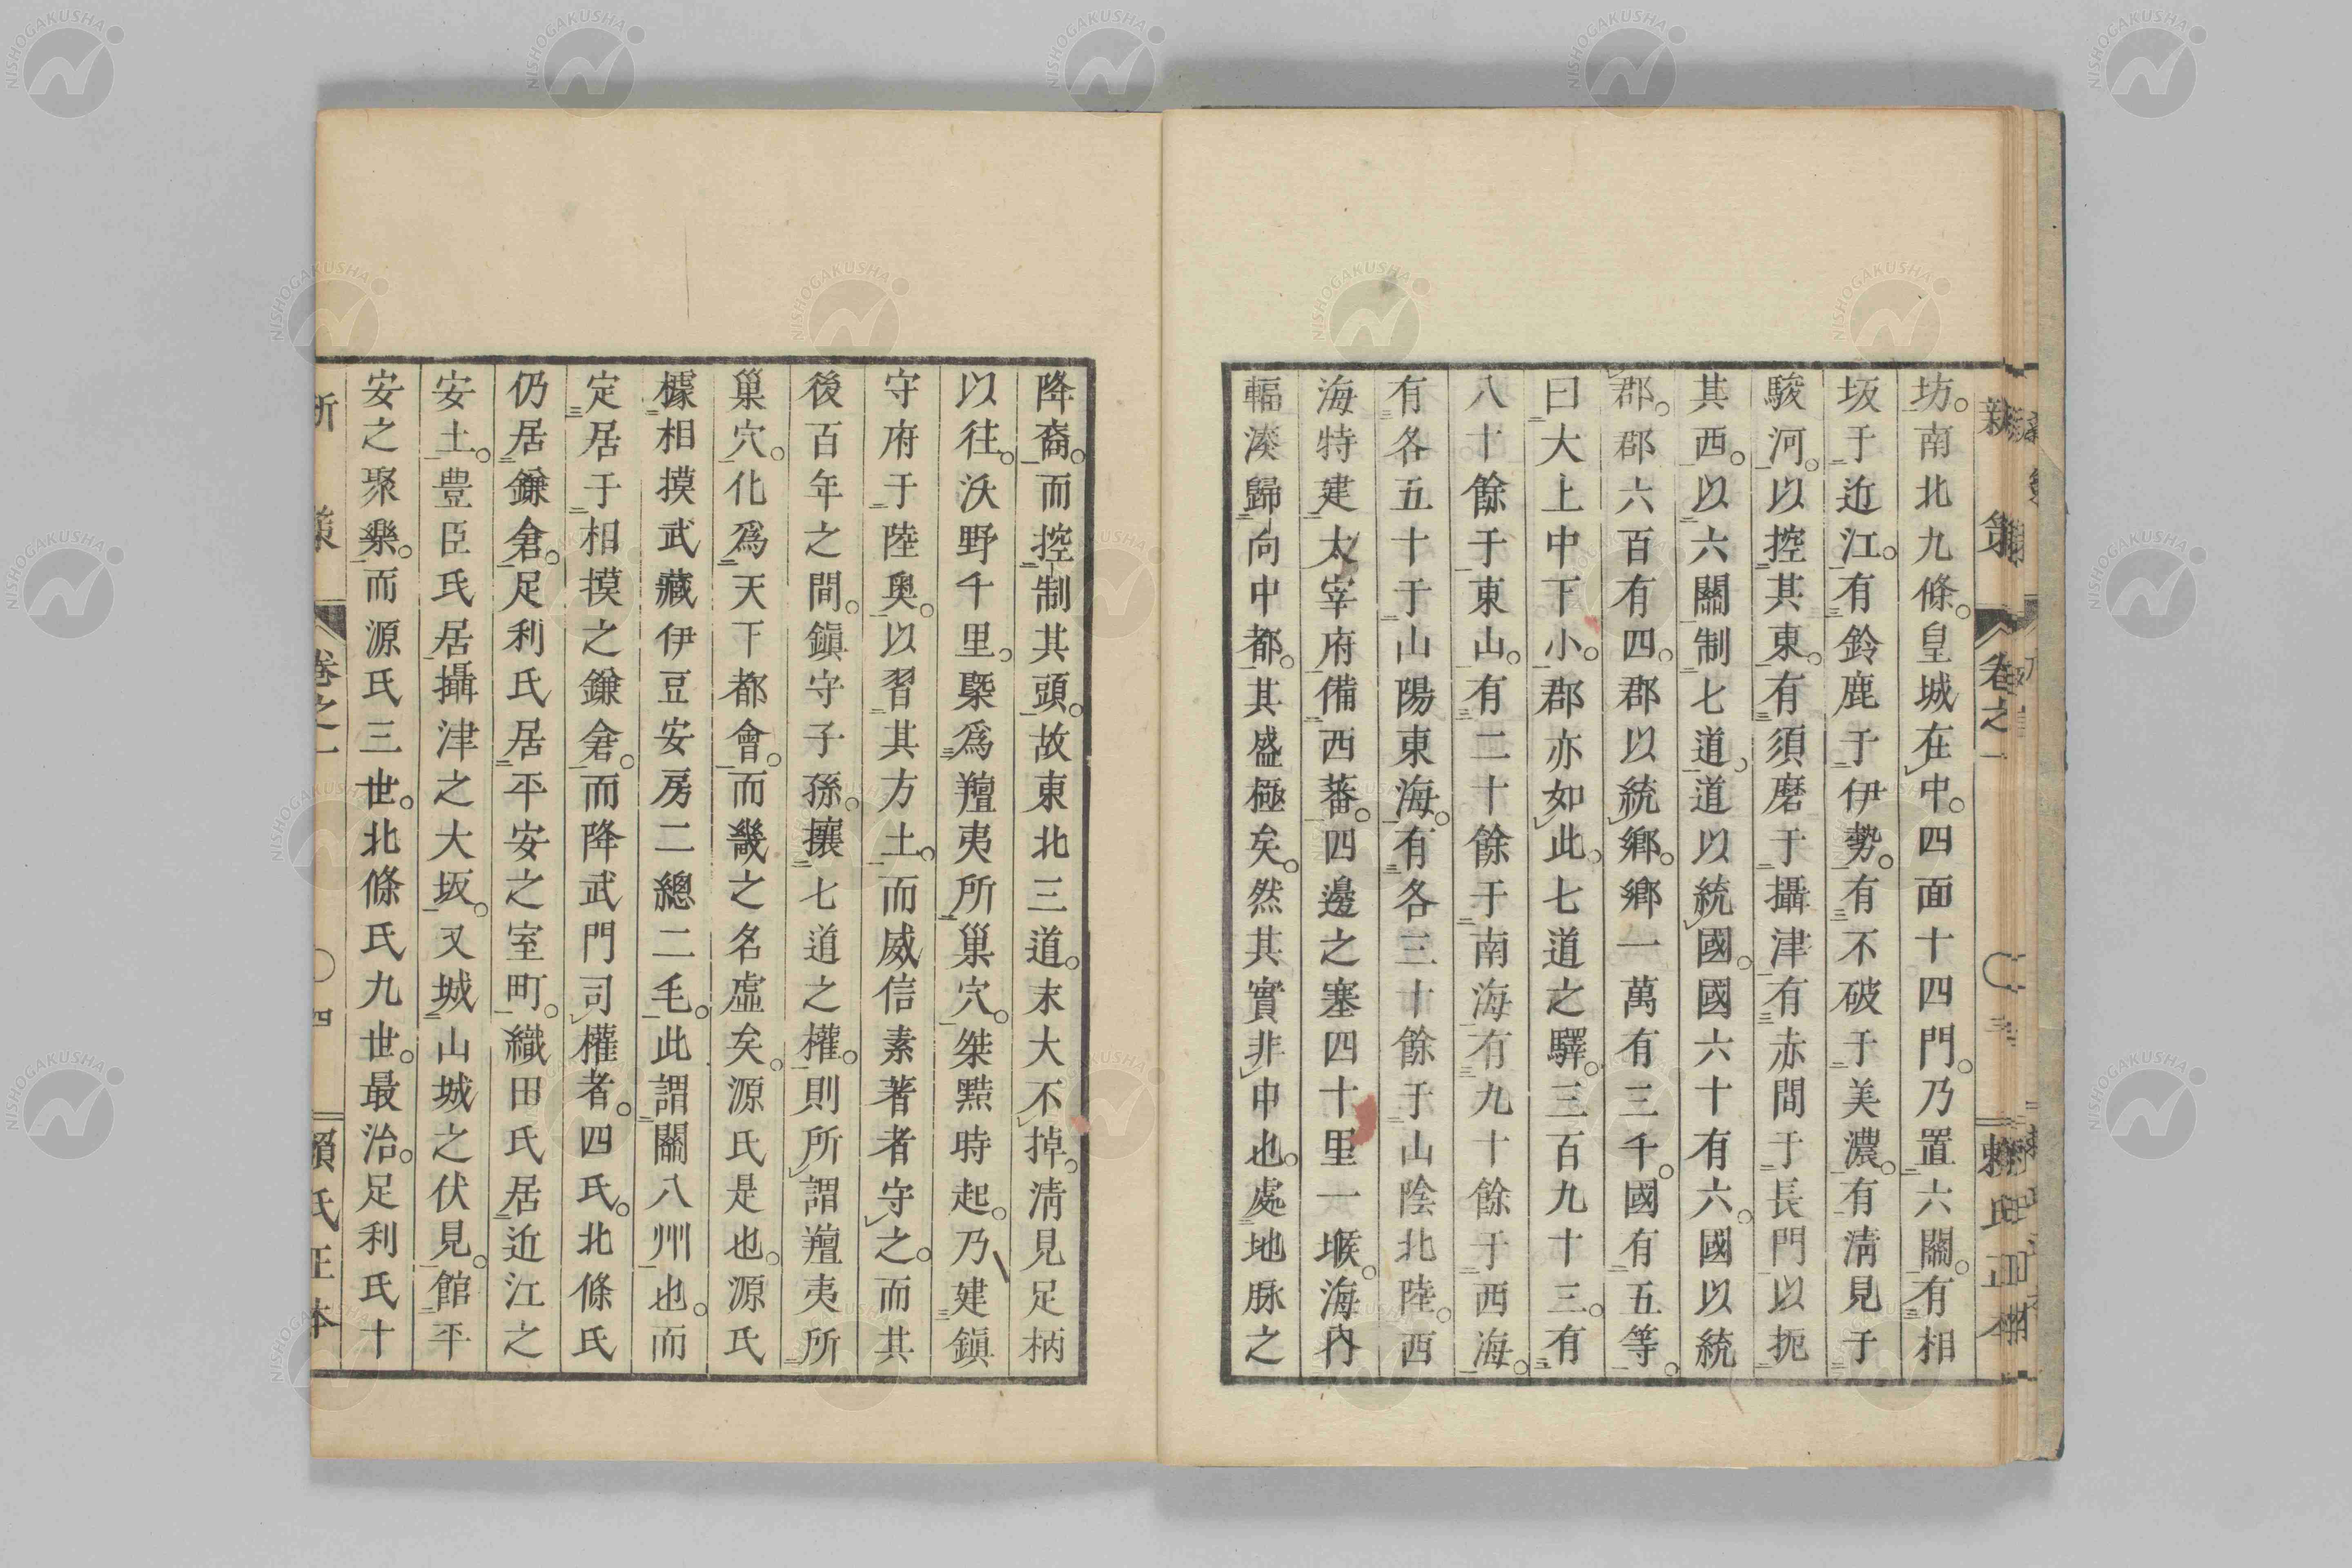 坊。南北九條。皇城在中。四面十四門。乃置六關。有相
坂于近江。有鈴鹿于伊勢。有不破于美濃。有淸見于
駿河。以控其東。有須磨于攝津有赤間于長門以扼
其西。以六關制七道。道以統國。國六十有六。國以統
郡。郡六百有四。郡以統鄉。鄉一萬有三千。國有五等。
曰大上中下小。郡亦如此。七道之驛。三百九十三。有
八十餘于東山。有二十餘于南海有九十餘于西海。
有各五十于山陽東海。有各三十餘于山陰北陸。西
海特建太宰府備西蕃。四邊之塞四十里一堠。海內
輻湊歸向中都。其盛極矣。然其實非中也。處地脉之
降裔。而控制其頭。故東北三道。末大不掉。淸見足柄
以往。沃野千里。槩爲羶夷所巢穴。桀黠時起。乃建鎭
守府于陸奧。以習其方土。而威信素著者守之。而其
後百年之間。鎭守子孫。攘七道之權。則所謂羶夷所
巢穴。化爲天下都會。而畿之名虛矣。源氏是也。源氏
據相摸武藏伊豆安房二總二毛。此謂關八州也。而
定居于相摸之鎌倉。而降武門司權者。四氏。北條氏
仍居鎌倉。足利氏居平安之室町。織田氏居近江之
安土。豊臣氏居攝津之大坂。又城山城之伏見。館平
安之聚樂。而源氏三世。北條氏九世。最治。足利氏十
新策 卷之一 〇四 賴氏正本
NISHOGAKUSHA